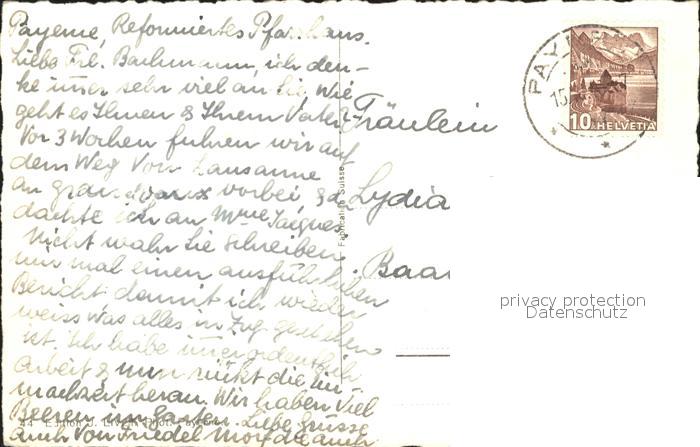 Payerne, Reformiertes Pfarrhaus.
Liebe Frl. Bachmann, ich den-
ke immer sehr viel an Sie. Wie
geht es Ihnen & Ihrem Vater?
Vor 3 Wochen fuhren wir auf
dem Weg von Lausanne
an vorbei, & da
dachte ich an Mme
Nicht wahr Sie schreiben
mir mal einen ausführlichen
Bericht damit ich wieder
weiss was alles in Zug geschehen
ist. Ich habe immer ordentlich
Arbeit & nun rückt die Ein-
machzeit heran. Wir haben viel
Beeren im Garten. Liebe Grüsse
auch von Friedel
44 Edition J.
Fabrication Suisse
Fräulein
Lydia
Baar
PAY
15
10 HELVETIA
privacy protection
Datenschutz